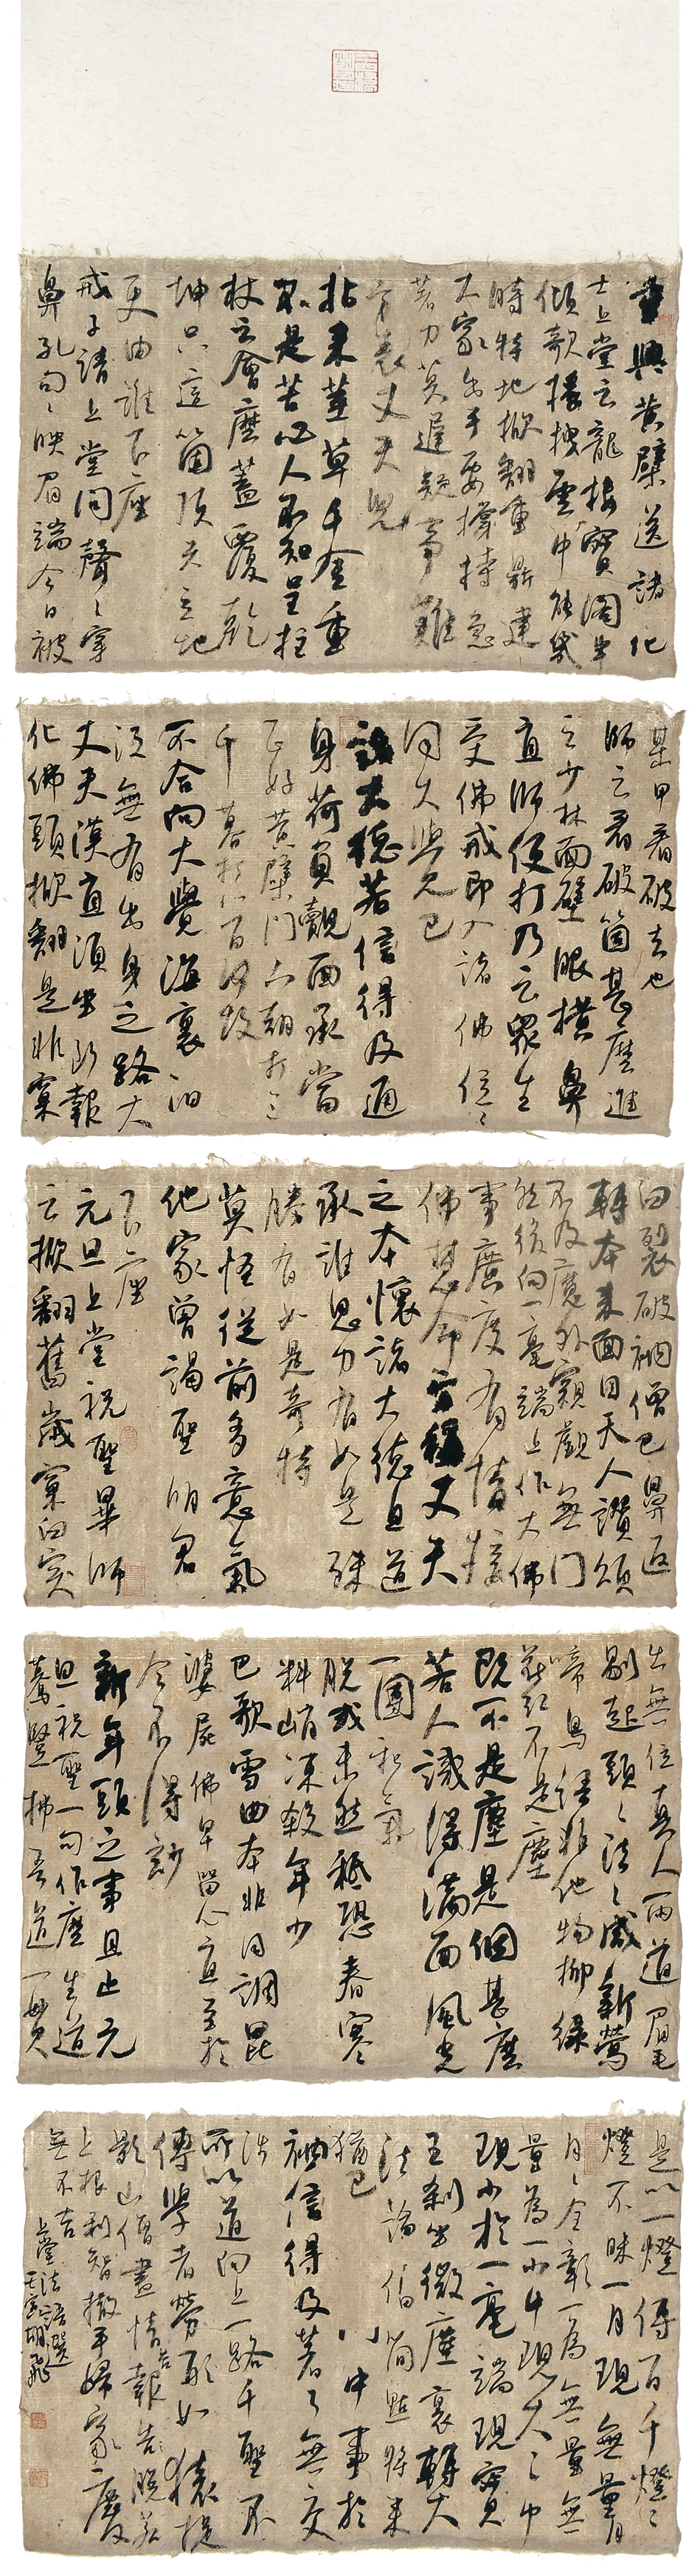 重興黃檗送諸化
士上堂云龍樓寶閣半
傾欹撥拽雲中能幾
時特地掀翻重鼎建
大家出手要撐持急
著力莫遲疑事難
方表丈夫兒
拈來莖草千金重
不是苦心人不知呈拄
杖云會麼蓋覆乾
坤只這箇頂天立地
更由誰下座
戒子請上堂問聲聲穿
鼻孔句句映眉端今日被
某甲看破去也
師云看破箇甚麼進
云少林面壁眼橫鼻
直師便打乃云眾生
受佛戒即入諸佛位位
同大覺已
諸大德若信得及通
身荷負覿面承當
正好黃檗門下朝打三
千暮打八百何故
不合向大覺海裏汩
沒無有出身之路大
丈夫漢直須坐斷報
化佛頭掀翻是非窠
臼裂破衲僧巴鼻返
轉本來面目天人讚頌
不及魔外覷覰無門
然後向一毫端上作大佛
事廣度有情接
佛慧命方稱丈夫
之本懷諸大德且道
承誰恩力有如是殊
勝有如是奇特
莫怪從前多意氣
他家曾謁聖明君
下座
元旦上堂祝聖畢師
云掀翻舊歲窠臼突
出無位真人兩道眉毛
剔起頭頭法法咸新鶯
啼鳥語非他物柳綠
花紅不是塵
既不是塵是個甚麼
若人識得滿面風光
一團和氣
脫或未然秪恐春寒
料峭凍殺年少
巴歌雪曲本非同調毘
婆尸佛早留心直至於
今不得妙
新年頭之事且止元
旦祝聖一句作麼生道
驀豎拂吾道一貫
是以一燈傳百千燈燈
燈不昧一月現無量月
月月全彰一為無量無
量為一小中現大大中
現小於一毫端現寶
王剎坐微塵裏轉大
法論伯簡點將來
猶已
八中事於
衲信得及著了無交
涉
所以道向上一路千聖不
傳學者勞形如猿捉
影山僧盡情告報告脫若
上根利智撒手歸家慶
無不吉
上堂法語選